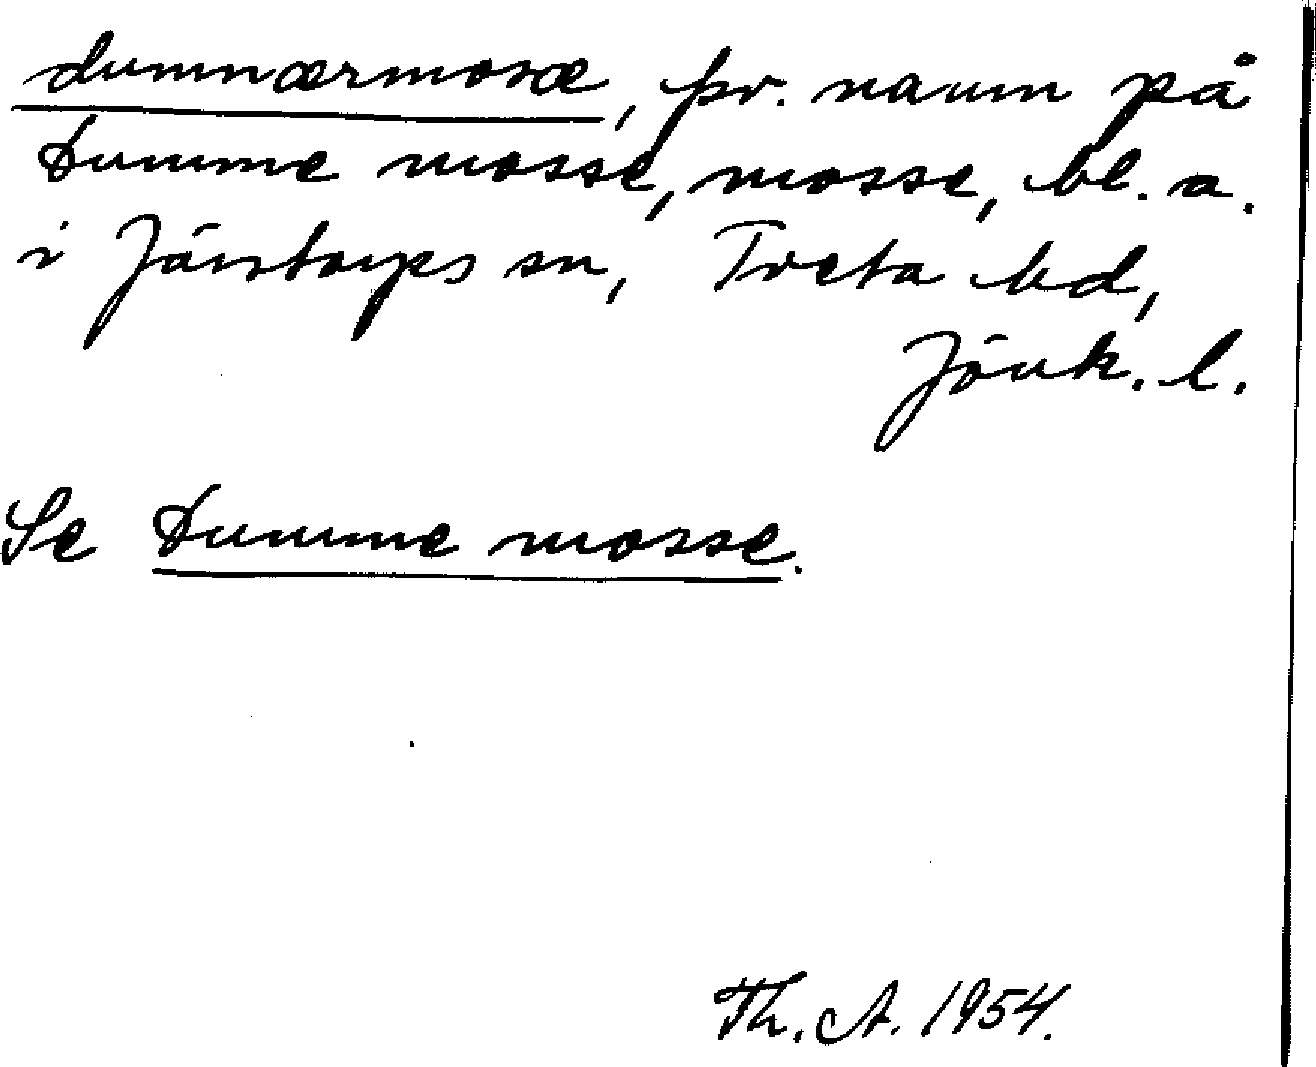 dumnærmosæ, pr. namn på
Dumme mosse, mosse, bl. a.
i Järstorps sn, Tveta hd,
Jönk. l.
Se Dumme mosse.
Th. A. 1954.